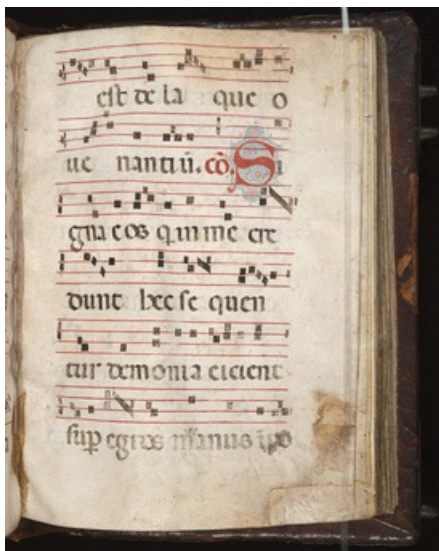 est de la que o
ue nantiū. cō. Si
gna eos q in me cre
dunt hec se quen
tur demonia eicient
sup egros manus īpo